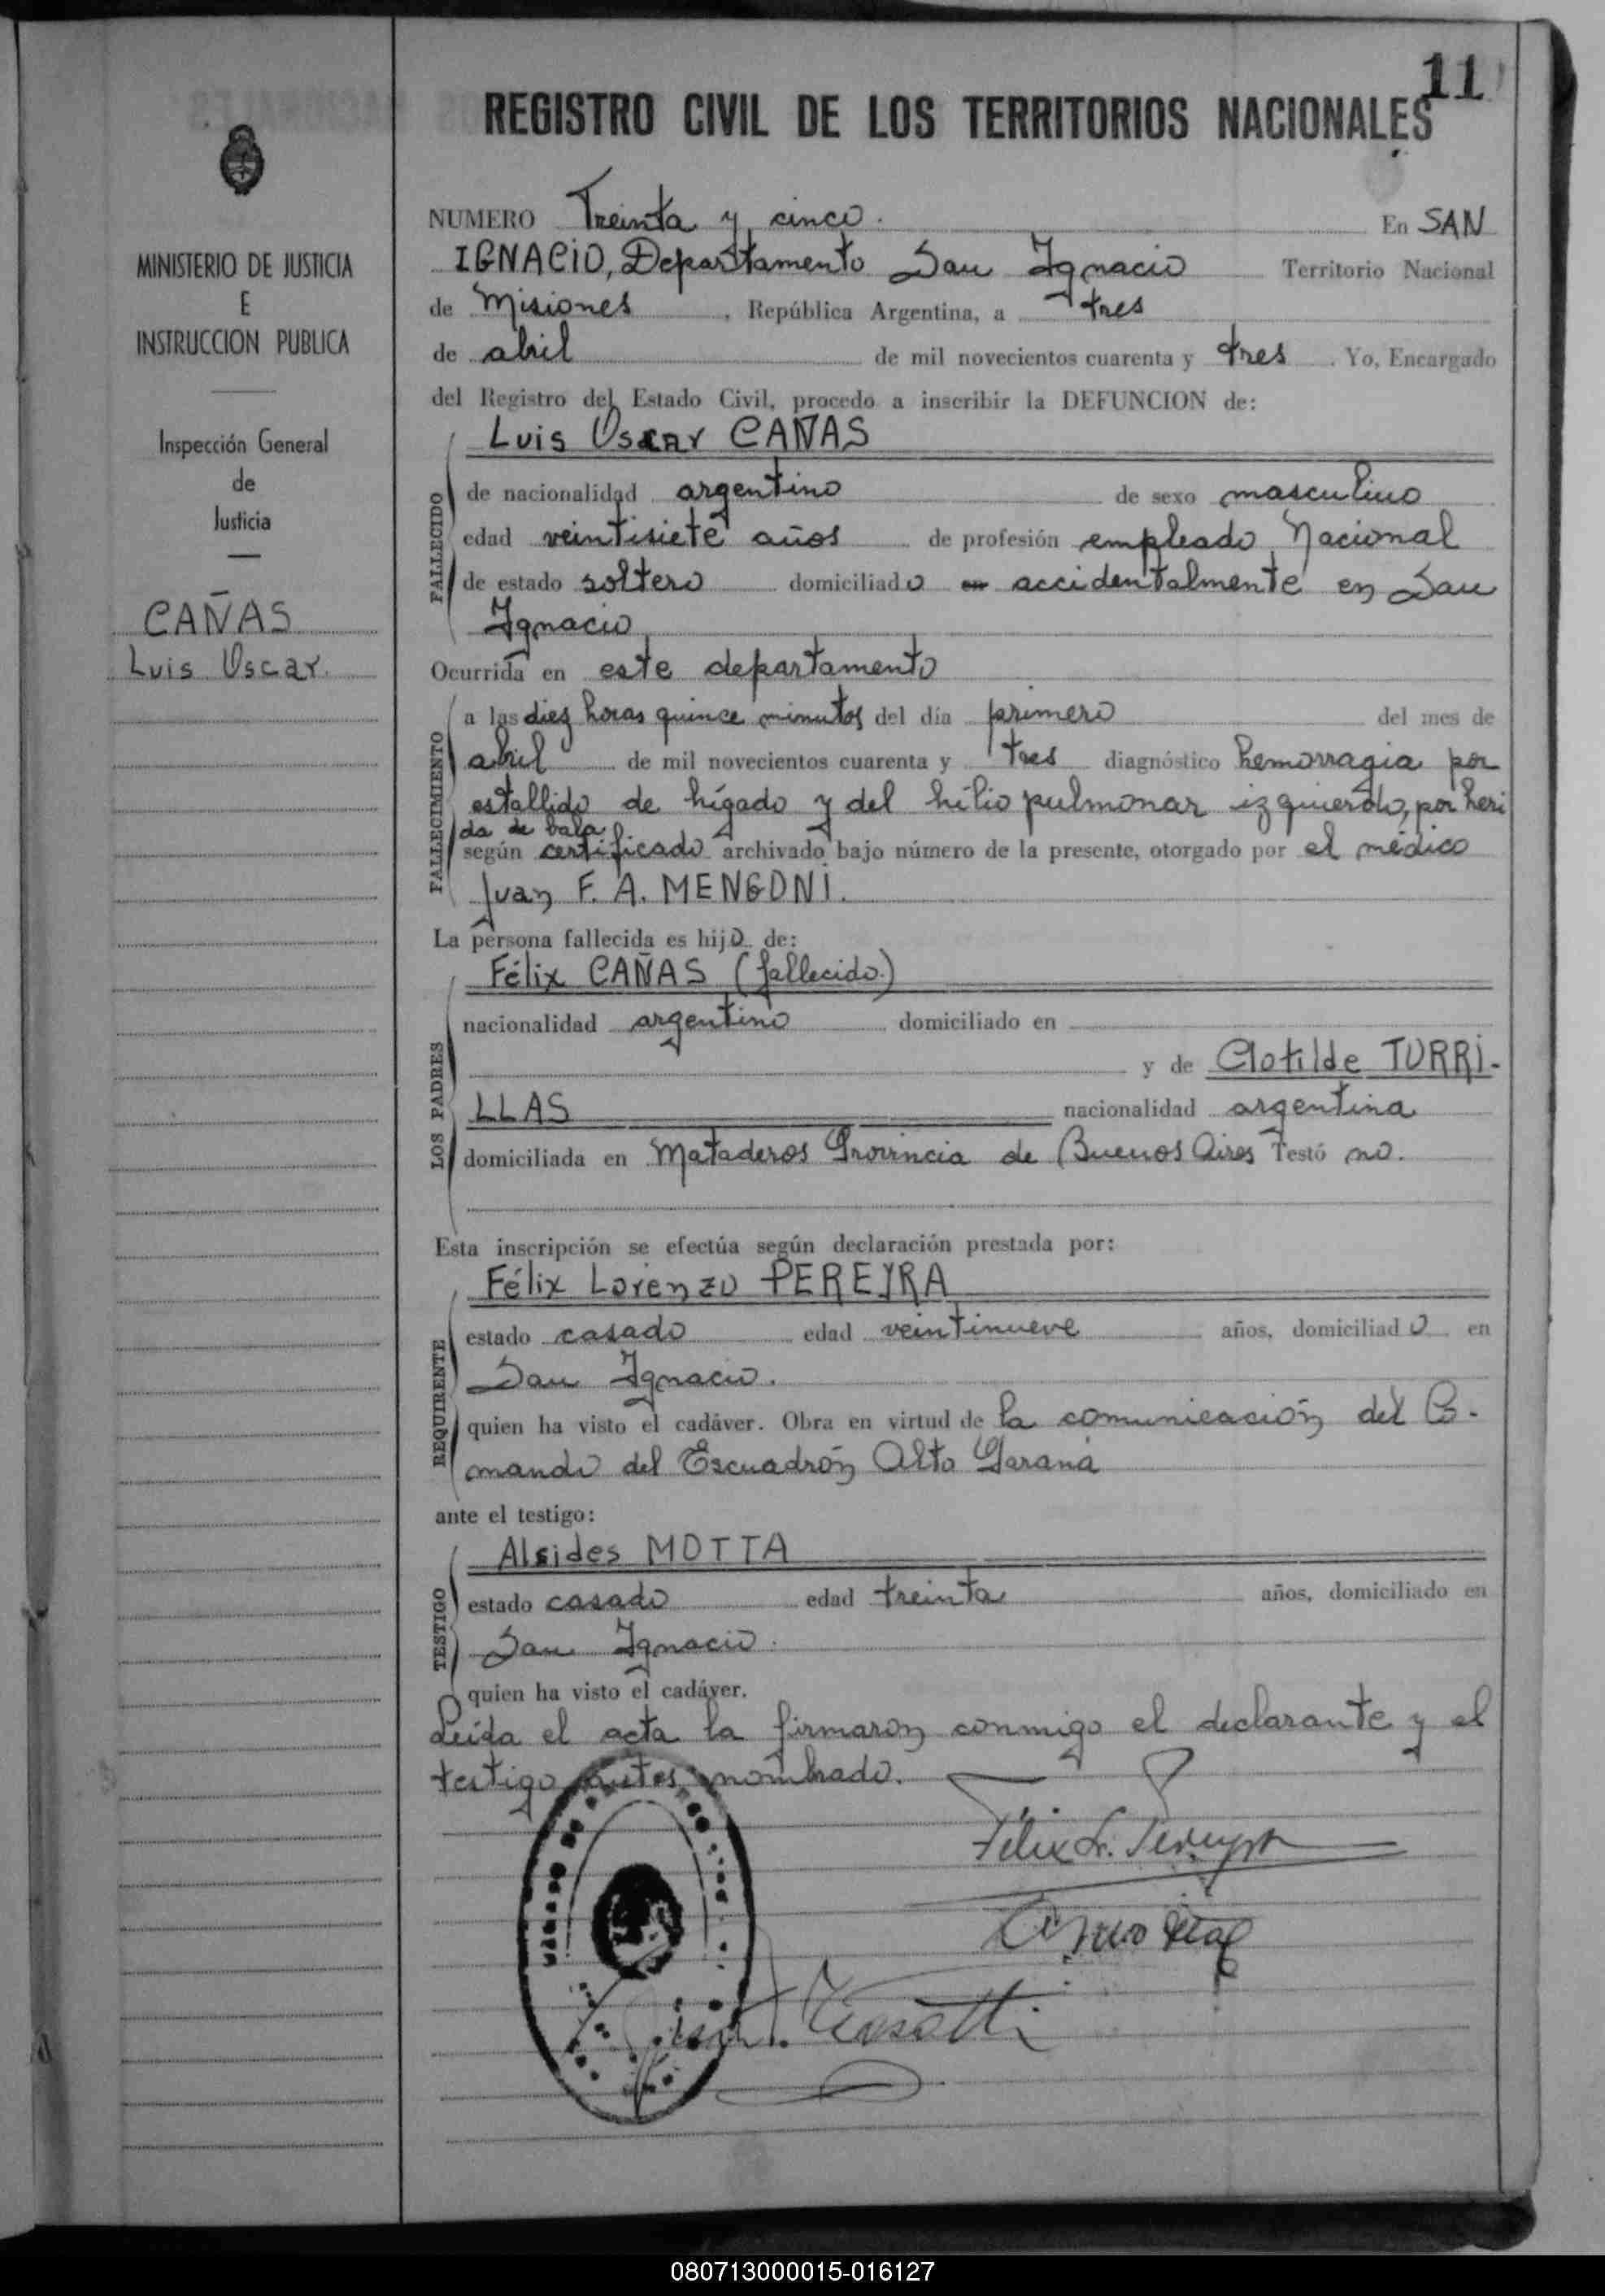 11
REGISTRO CIVIL DE LOS TERRITORIOS NACIONALES
MINISTERIO DE JUSTICIA
E
INSTRUCCION PUBLICA
Inspección General
de
Justicia
CAÑAS
Luis Oscar.
NUMERO Treinta y cinco. En SAN
IGNACIO, Departamento San Ignacio Territorio Nacional
de Misiones, República Argentina, a tres
de abril de mil novecientos cuarenta y tres. Yo, Encargado
del Registro del Estado Civil, procedo a inscribir la DEFUNCION de:
Luis Oscar CAÑAS
FALLECIDO
de nacionalidad argentino de sexo masculino
edad veintisiete años de profesión empleado Nacional
de estado soltero domiciliado accidentalmente en San
Ignacio
Ocurrida en este departamento
FALLECIMIENTO
a las diez horas quince minutos del día primero del mes de
abril de mil novecientos cuarenta y tres diagnóstico hemorragia por
estallido de hígado y del hilio pulmonar izquierdo, por heri
da de bala
según certificado archivado bajo número de la presente, otorgado por el médico
Juan F. A. MENGONI.
La persona fallecida es hijo de:
LOS PADRES
Félix CAÑAS (fallecido)
nacionalidad argentino domiciliado en
y de Clotilde TURRI-
LLAS nacionalidad argentina
domiciliada en Mataderos Provincia de Buenos Aires Testó no.
Esta inscripción se efectúa según declaración prestada por:
REQUIRENTE
Félix Lorenzo PEREYRA
estado casado edad veintinueve años, domiciliado en
San Ignacio.
quien ha visto el cadáver. Obra en virtud de la comunicación del Co-
mando del Escuadrón Alto Paraná
ante el testigo:
TESTIGO
Alsides MOTTA
estado casado edad treinta años, domiciliado en
San Ignacio.
quien ha visto el cadáver.
Leída el acta la firmaron conmigo el declarante y el
testigo antes nombrado.
Félix L. Pereyra
080713000015-016127